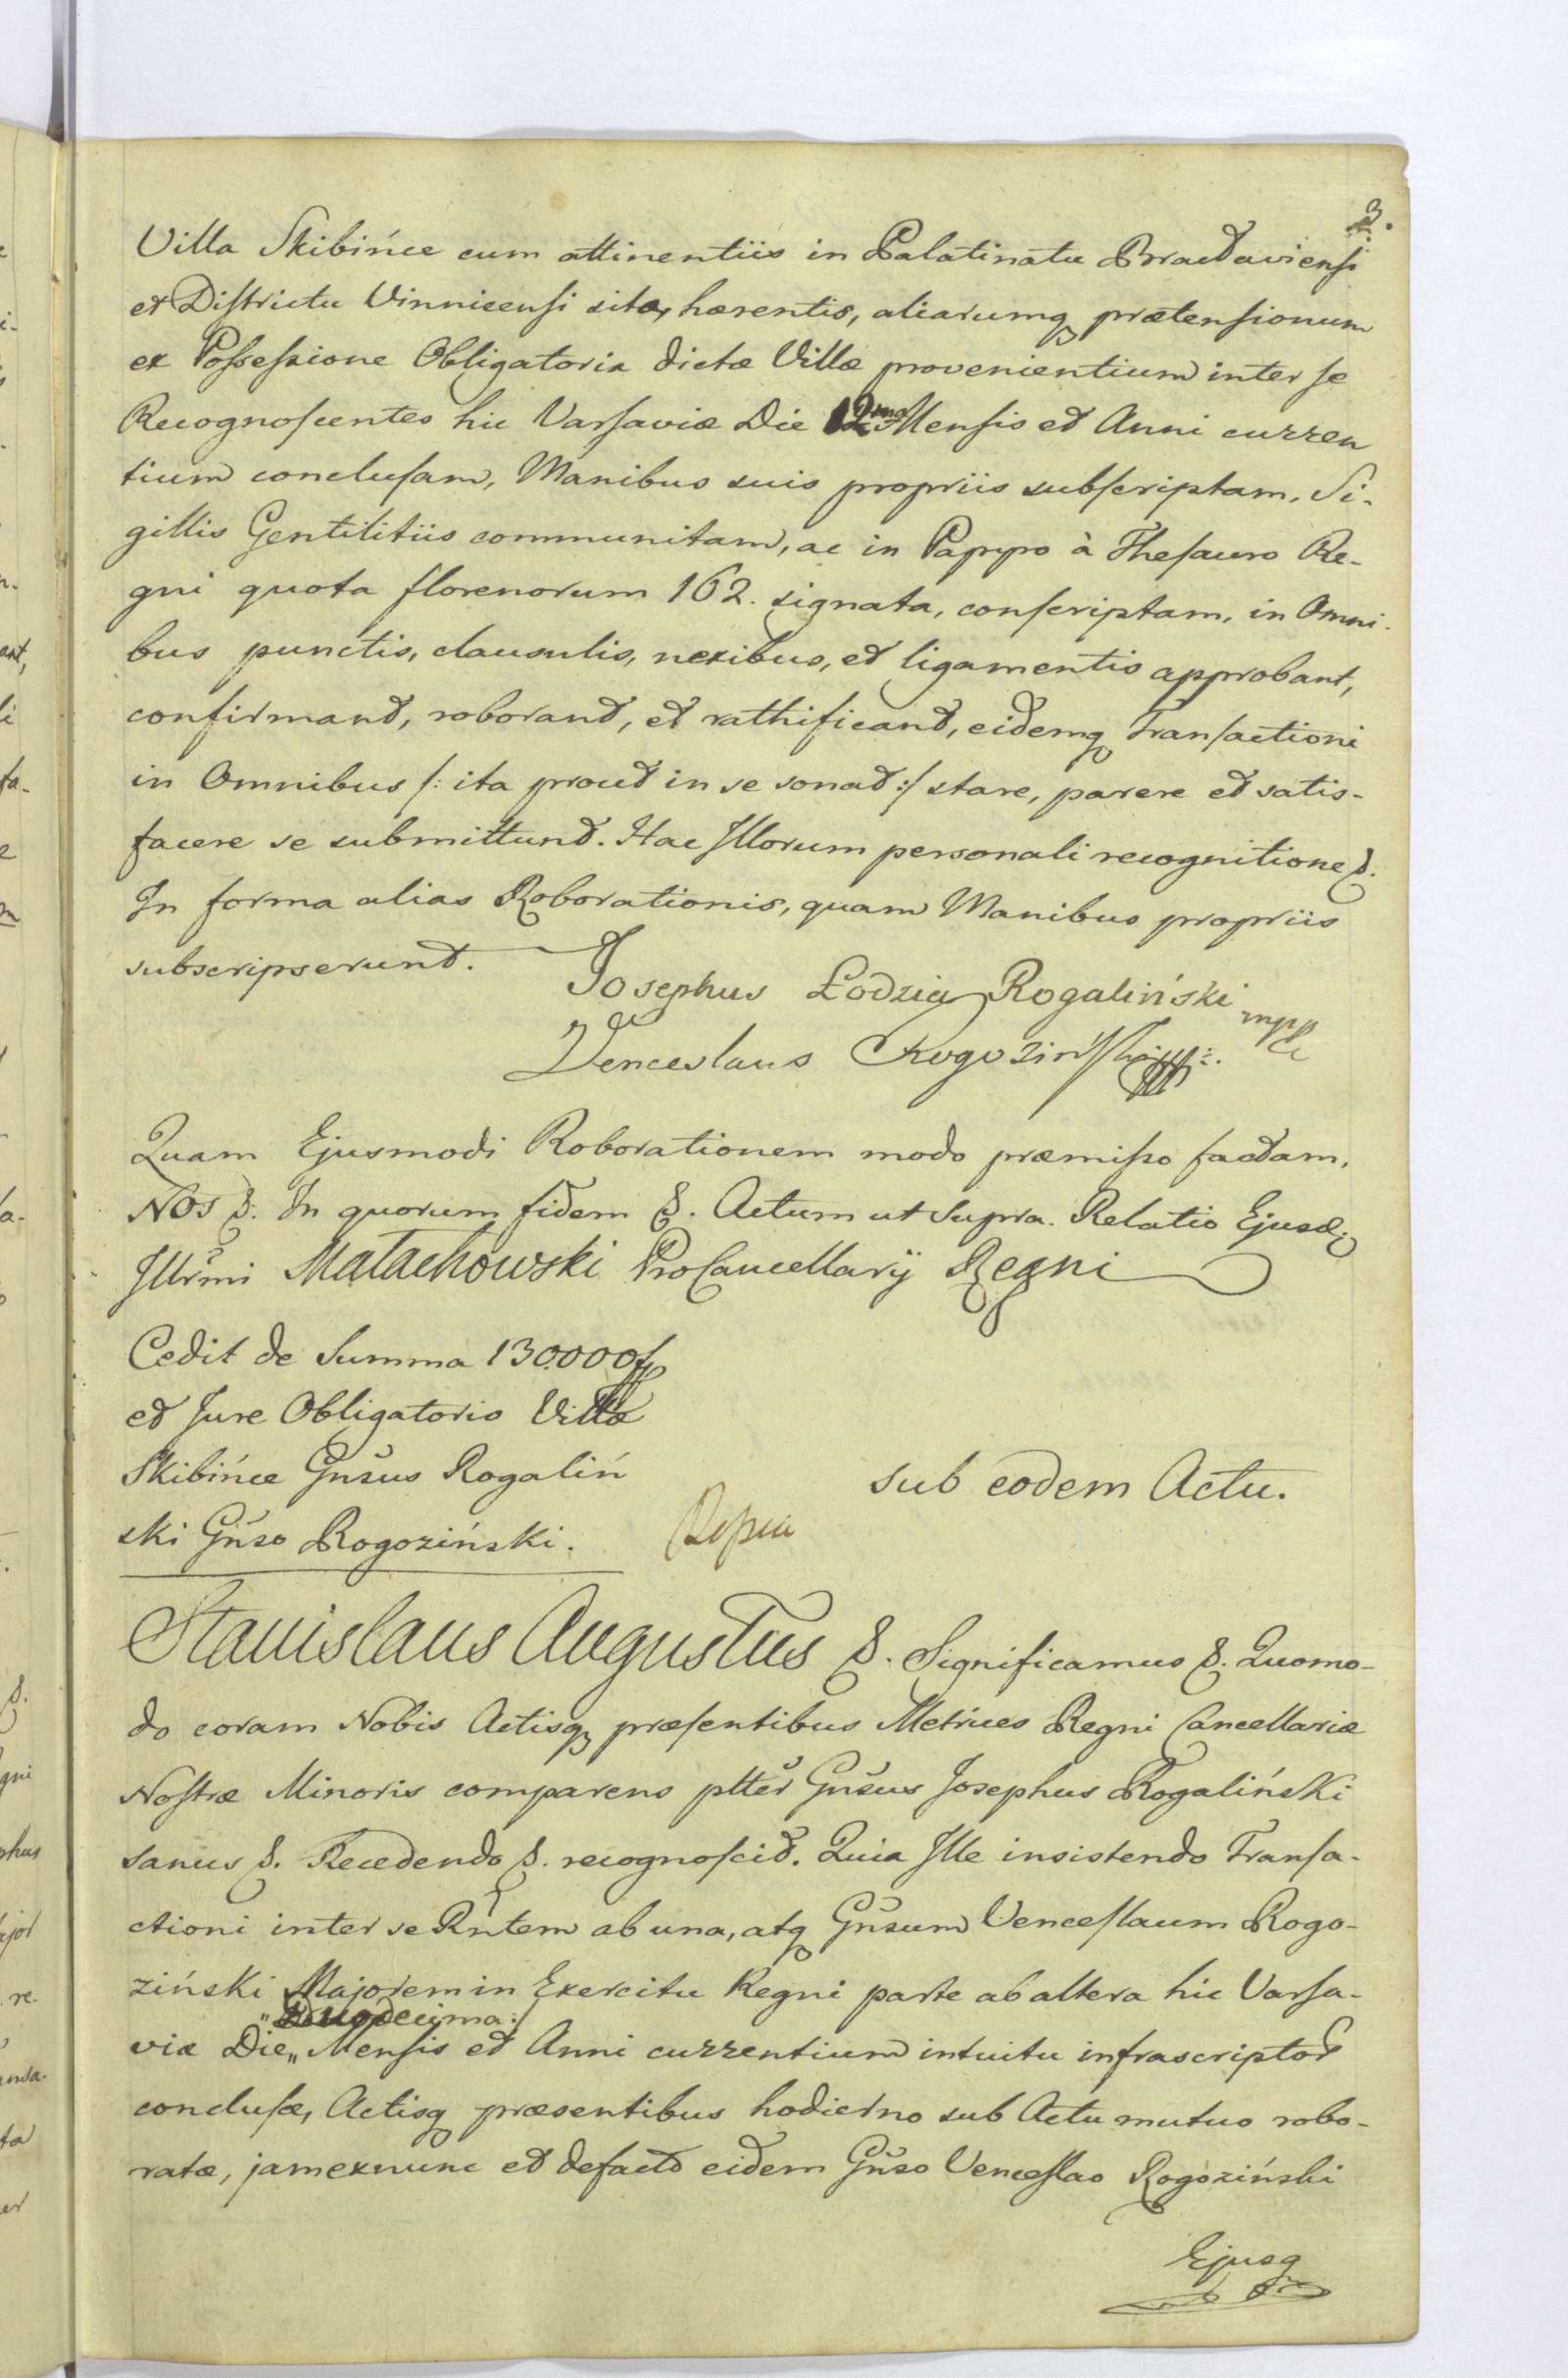 3.
Villa Skibińce cum attinentiis in Palatinatu Braclaviensi
et Districtu Vinnicensi sitæ, hærentis, aliarumq prætensionum
ex Possessione Obligatoria dictæ Villæ provenientium inter se
Recognoscentes hic Varsaviæ Die 12ma Mensis et Anni curren
tium conclusam, Manibus suis propriis subscriptam, Si-
gillis Gentilitiis communitam, ac in Papyro à Thesauro Re-
gni quota florenorum 162. signata, conscriptam, in Omni-
bus punctis, clausulis, nexibus, et ligamentis approbant,
confirmant, roborant, et rathificant, eidemq Transactioni
in Omnibus /: ita prout in se sonat :/ stare, parere et satis-
facere se submittunt. Hac Illorum personali recognitione &.
In forma alias Roborationis, quam Manibus propriis
subscripserunt. Josephus Łodzia Rogaliński mpp
Venceslaus Rogoziński
Quam Ejusmodi Roborationem modo præmisso factam,
NOS &. In quorum fidem &. Actum ut supra. Relatio Ejusd:
Illrmi Małachowski ProCancellarij Regni
Cedit de Summa 130000 fp
et Jure Obligatorio Villæ
Skibińce Gnsus Rogaliń
ski Gnso Rogoziński.
sub eodem Actu.
Stanislaus Augustus &. Significamus &. Quomo-
do coram Nobis Actisq præsentibus Metrices Regni Cancellariæ
Nostræ Minoris comparens plter Gnsus Josephus Rogaliński
sanus &. Recedendo &. recognoscit. Quia Ille insistendo Transa-
ctioni inter se Rntem ab una, atq Gnsum Venceslaum Rogo-
ziński Majorem in Exercitu Regni parte ab altera hic Varsa-
"Duodecima:/
viæ Die,, Mensis et Anni currentium intuitu infrascriptor
conclusæ, Actisq præsentibus hodierno sub Actu mutuo robo-
ratæ, jamexnunc et defacto eidem Gnso Venceslao Rogoziński
Ejusq